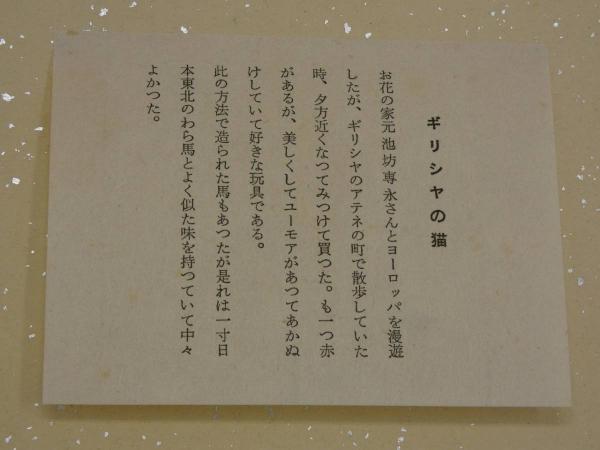 ギリシヤの猫
お花の家元池坊専永さんとヨーロッパを漫遊
したが、ギリシヤのアテネの町で散歩していた
時、夕方近くなつてみつけて買つた。も一つ赤
があるが、美しくしてユーモアがあつてあかぬ
けしていて好きな玩具である。
此の方法で造られた馬もあつたが是れは一寸日
本東北のわら馬とよく似た味を持つていて中々
よかつた。